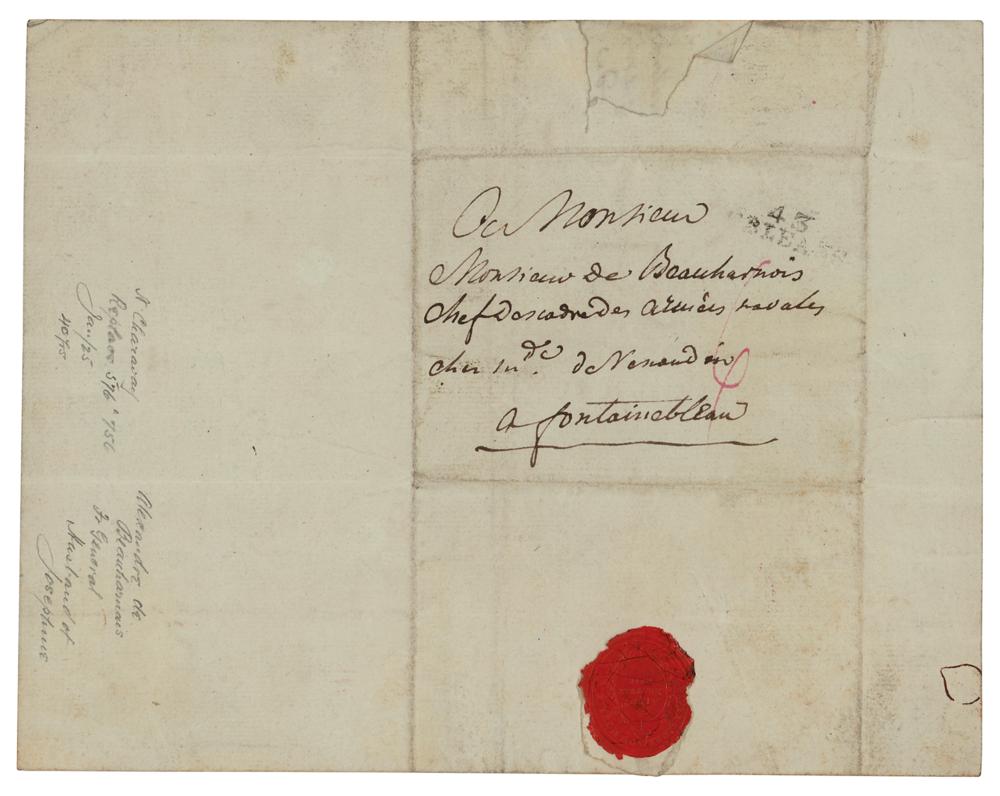 A Monsieur
Monsieur de Beauharnois
chef d'escadre des armées navales
chez md.e de Renaudin
a fontainebleau
43
ORLEANS
N Charavay
Jan/25
40 Frs.
Alexandre de
Beauharnais
Fr General
Husband of
Josephine